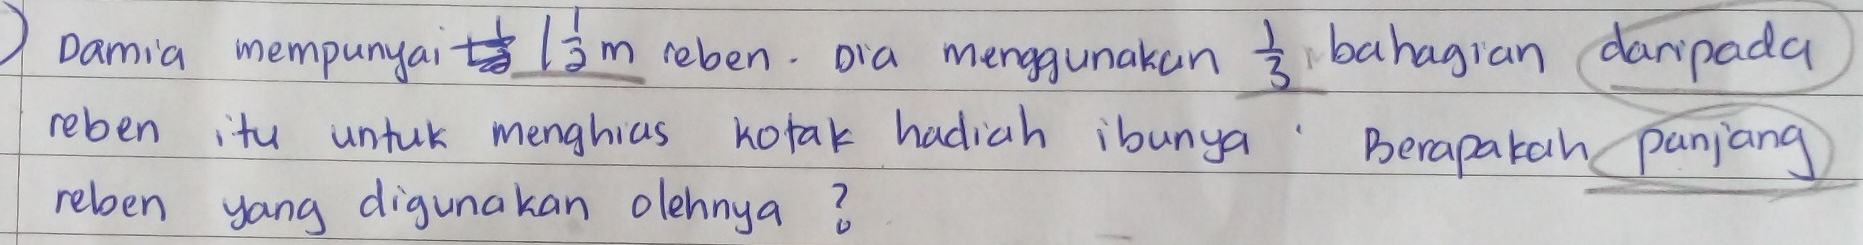 ) Damia mempunyai 1 1/2 m reben. Dia menggunakan 1/3 bahagian daripada
reben itu untuk menghias kotak hadiah ibunya. Berapakah panjang
reben yang digunakan olehnya?